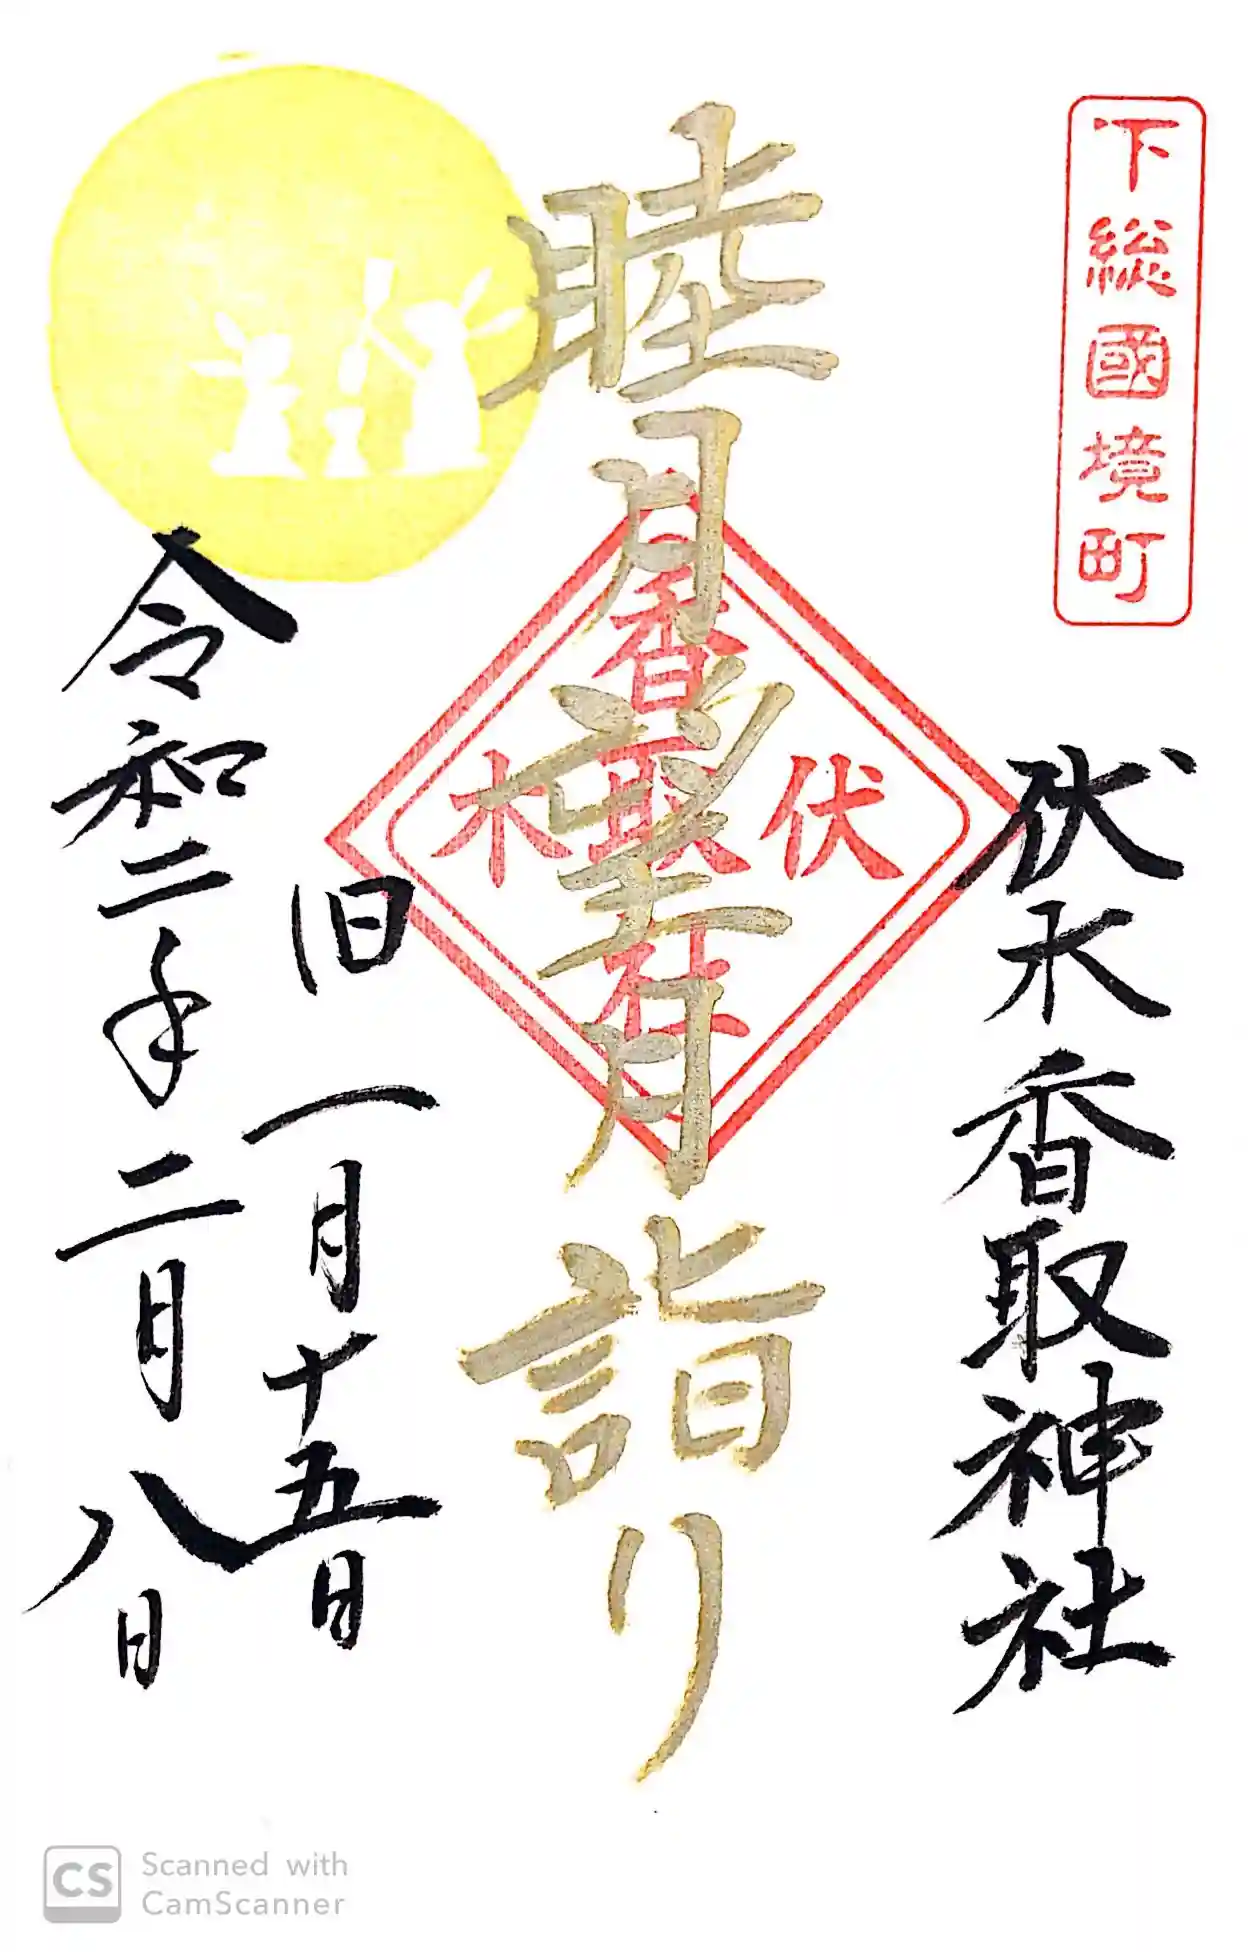 下総國境町
伏木香取神社
睦月望月詣り
伏木
香取社
旧一月十五日
令和二年二月八日
CS
Scanned with
CamScanner